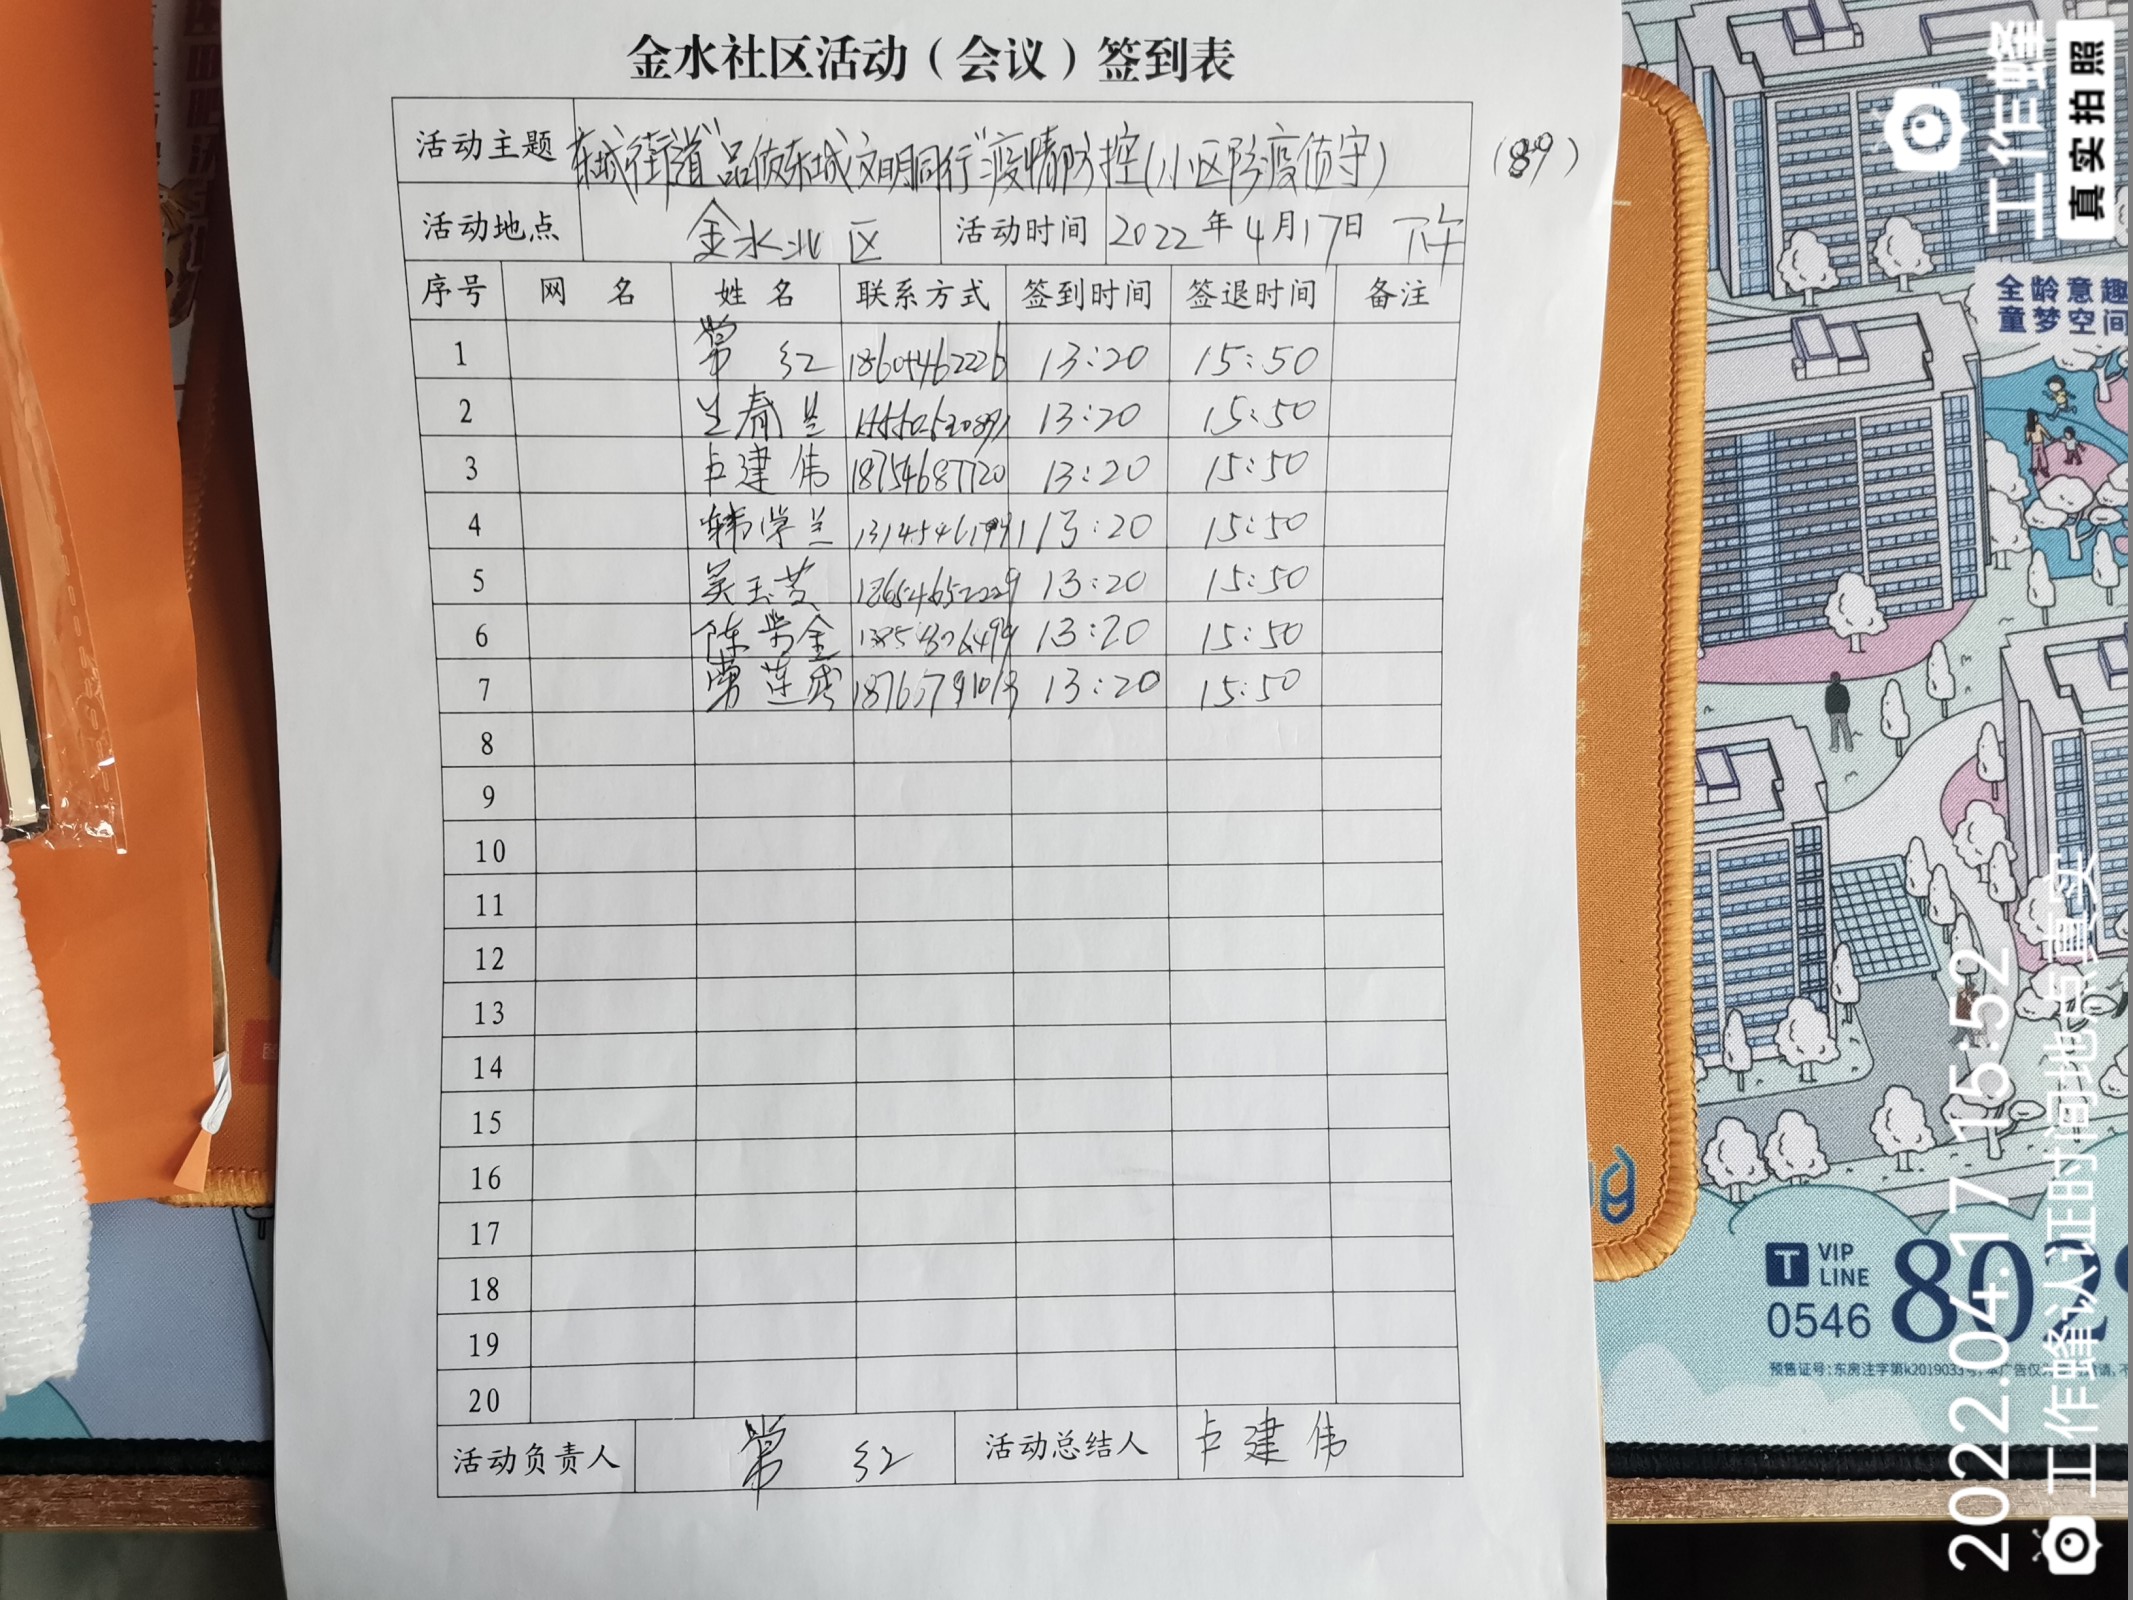 金水社区活动（会议）签到表
活动主题 东城街道"品质东城文明同行"疫情防控(小区防疫值守) (89)
活动地点 金水北区 活动时间 2022年4月17日 下午
序号 网 名 姓 名 联系方式 签到时间 签退时间 备注
1 常 红 18604462226 13:20 15:50
2 兰 13:20 15:50
3 卢建伟 18754687720 13:20 15:50
4 韩学兰 13:20 15:50
5 吴玉芝 13:20 15:50
6 陈 金 13:20 15:50
7 13:20 15:50
8
9
10
11
12
13
14
15
16
17
18
19
20
活动负责人 常 红 活动总结人 卢建伟
工作蜂
真实拍照
全龄意趣
童梦空间
VIP
LINE
0546
预售证号:东房注字第k2019033号
2022.04.17 15:52
工作蜂认证时间地点真实